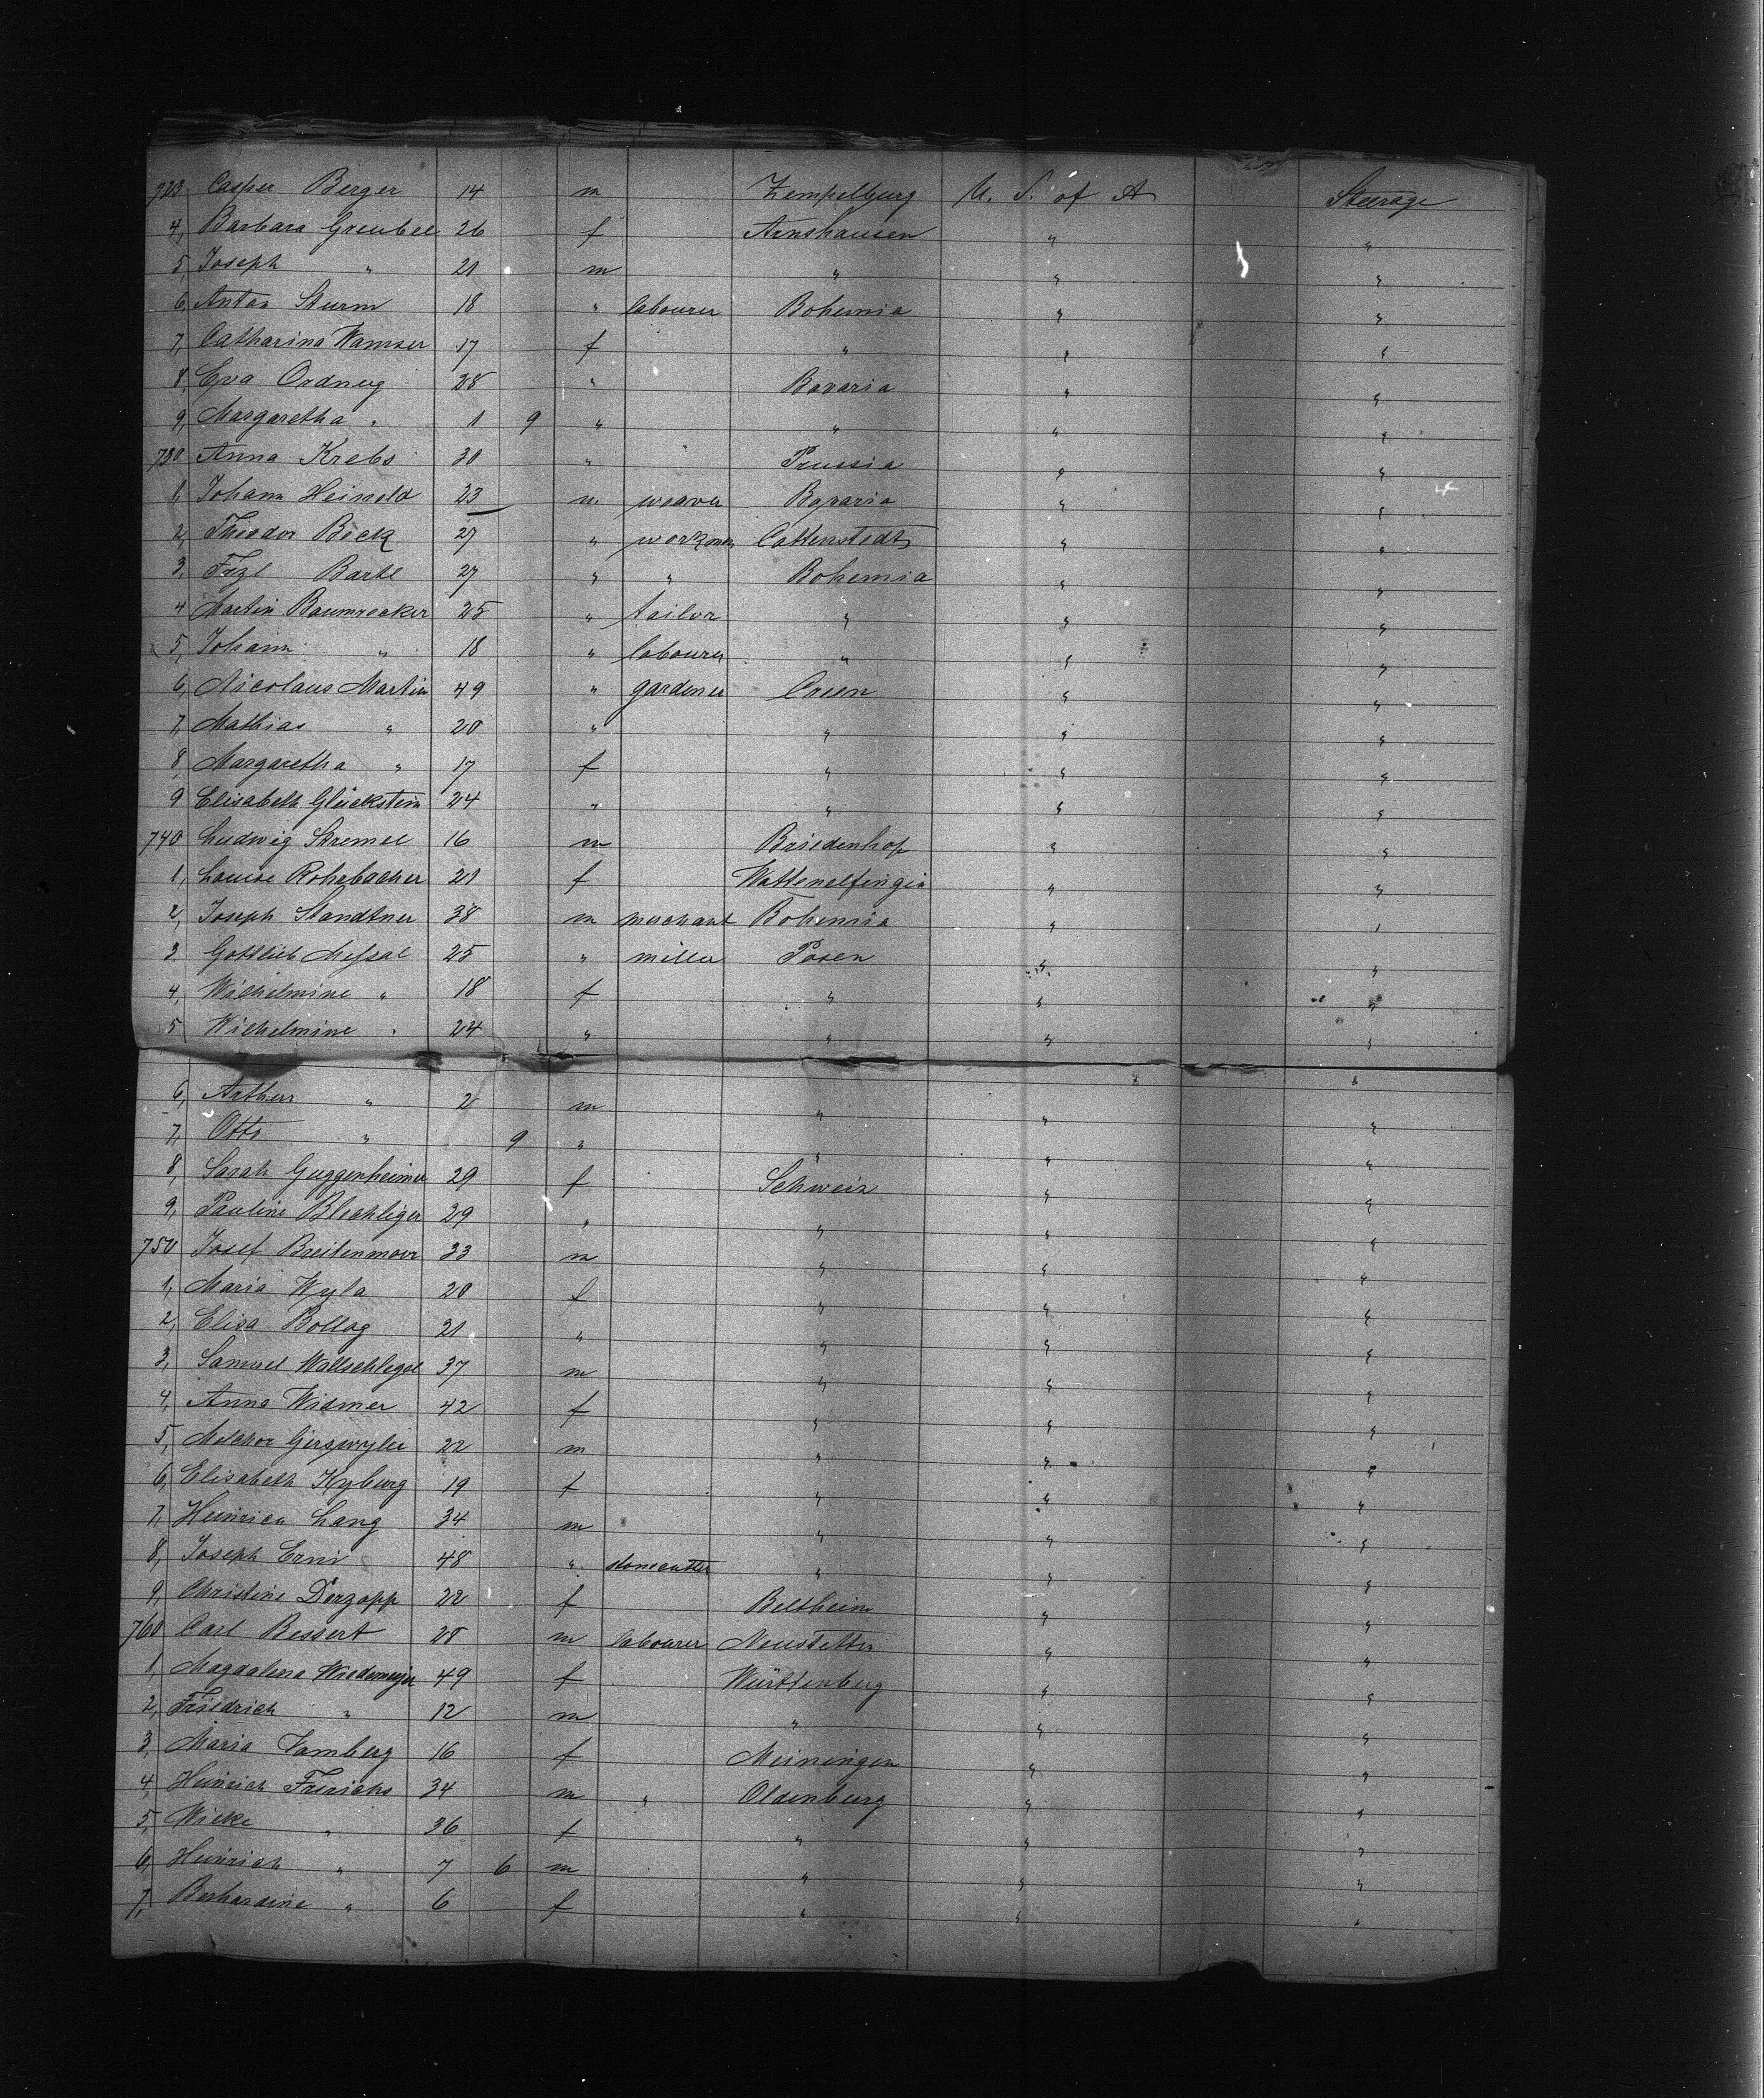 723, Casper Berger 14 m Zempelburg U. S. of A Steerage
4, Barbara Greubel 26 f Arnshausen " "
5 Joseph " 21 m " " "
6, Anton Sturm 18 " labourer Bohemia " "
7, Catharina Wamser 17 f " " "
8, Eva Ordnug 28 " Bavaria " "
9, Margaretha " 1 9 " " " "
730 Anna Krebs 30 " Prussia " "
1, Johann Heinold 23 m weaver Bavaria " "
2, Theodor Beck 27 " workman Cattenstedt " "
3, Barte 27 " " Bohemia " "
4 Martin Baumrecker 25 " tailor " " "
5, Johann " 18 " labourer " " "
6, Nicolaus Martin 49 " gardener " "
7, Mathias " 20 " " " "
8, Margaretha " 17 f " " "
9 Elisabeth Glückstein 24 " " " "
740 Ludwig Stremel 16 m " "
1, Louise Rohrbacher 21 f " "
2, Joseph Standtner 38 m merchant Bohemia " "
3 Gottlieb 25 " miller Posen " "
4, Wilhelmine " 18 f " " "
5 Wilhelmine " 24 " " " "
6, Arthur " 2 m " " "
7, Otto " 9 " " " "
8, Sarah Guggenheimer 29 f Schweiz " "
9, Pauline Blechliger 29 " " " "
750 Josef Breitenmoser 33 m " " "
1, Maria Wyla 20 f " " "
2, Elisa Bollag 21 " " " "
3, Samuel Wallschlegel 37 m " " "
4, Anna Widmer 42 f " " "
5, Melchor 22 m " " "
6, Elisabeth Kyburg 19 f " " "
7, Heinrich Lang 34 m " " "
8, Joseph Erni 48 " stonecutter " " "
9, Christine Dörzapp 22 f Beltheim " "
760 Carl Bessert 28 m labourer Neustettin " "
1, Magdalena Wiedemeyer 49 f Württenberg " "
2, Friedrich " 12 m " " "
3, Maria Vamberg 16 f Meiningen " "
4, Heinrich Frerichs 34 m " Oldenburg " "
5, Wilke " 36 f " " "
6, Heinrich " 7 6 m " " "
7, Berhardine " 6 f " " "